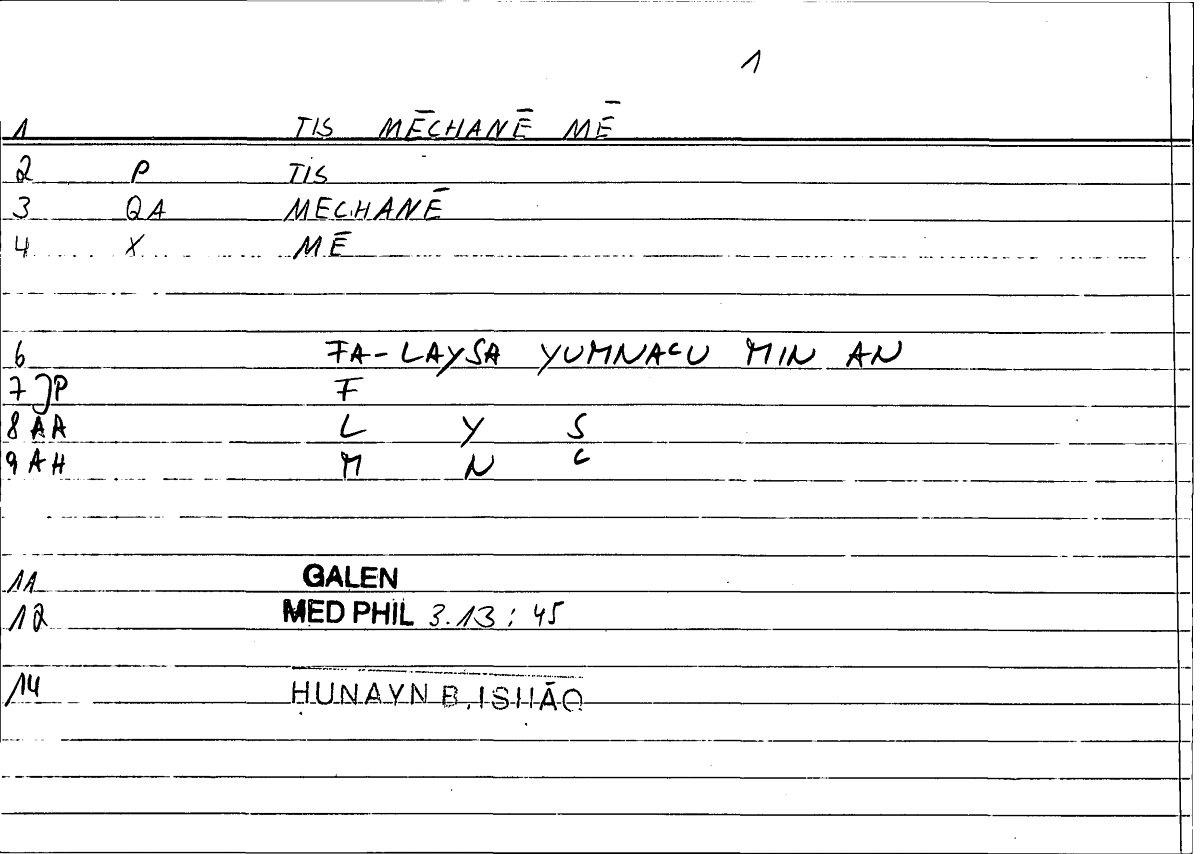 1
1 TIS MĒCHANĒ MĒ
2 P TIS
3 QA MECHANĒ
4 X MĒ
6 FA-LAYSA YUMNAcU MIN AN
7 JP F
8 AA L Y S
9 AH M N c
11 GALEN
12 MED PHIL 3.13 : 45
14 HUNAYN B. ISHĀQ